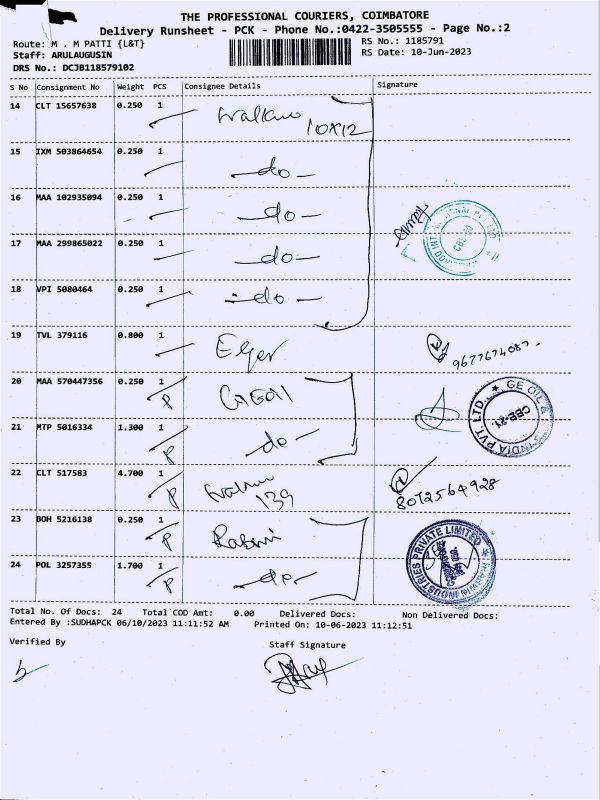 THE PROFESSIONAL COURIERS, COIMBATORE
Delivery Runsheet - PCK - Phone No.:0422-3505555 - Page No.:2
Route: M . M PATTI {L&T}
RS No.: 1185791
Staff: ARULAUGUSIN
RS Date: 10-Jun-2023
DRS No.: DCJB118579102
S No Consignment No Weight PCS Consignee Details Signature
14 CLT 15657638 0.250 1
10X12
15 IXM 503864654 0.250 1 -do-
16 MAA 102935094 0.250 1 -do-
17 MAA 299865022 0.250 1 -do-
18 VPI 5080464 0.250 1 -do-
19 TVL 379116 0.800 1
9677674087
20 MAA 570447356 0.250 1 P
21 MTP 5016334 1.300 1 P do-
GE OIL & INDIA PVT. LTD.
CBE-21.
22 CLT 517583 4.700 1 P
139
8072564928
23 BOH 5216138 0.250 1 P
24 POL 3257355 1.700 1 P -do-
INDUSTRIES PRIVATE LIMITED
Total No. Of Docs: 24 Total COD Amt: 0.00 Delivered Docs: Non Delivered Docs:
Entered By :SUDHAPCK 06/10/2023 11:11:52 AM Printed On: 10-06-2023 11:12:51
Verified By
Staff Signature